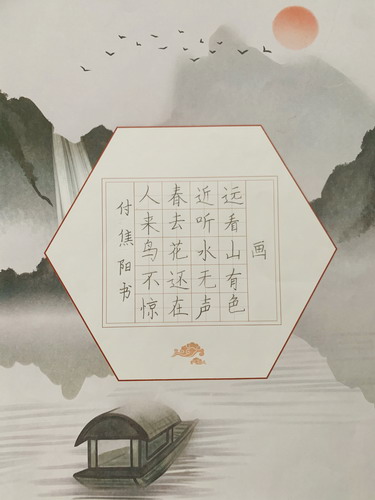 画
远看山有色
近听水无声
春去花还在
人来鸟不惊
付焦阳书